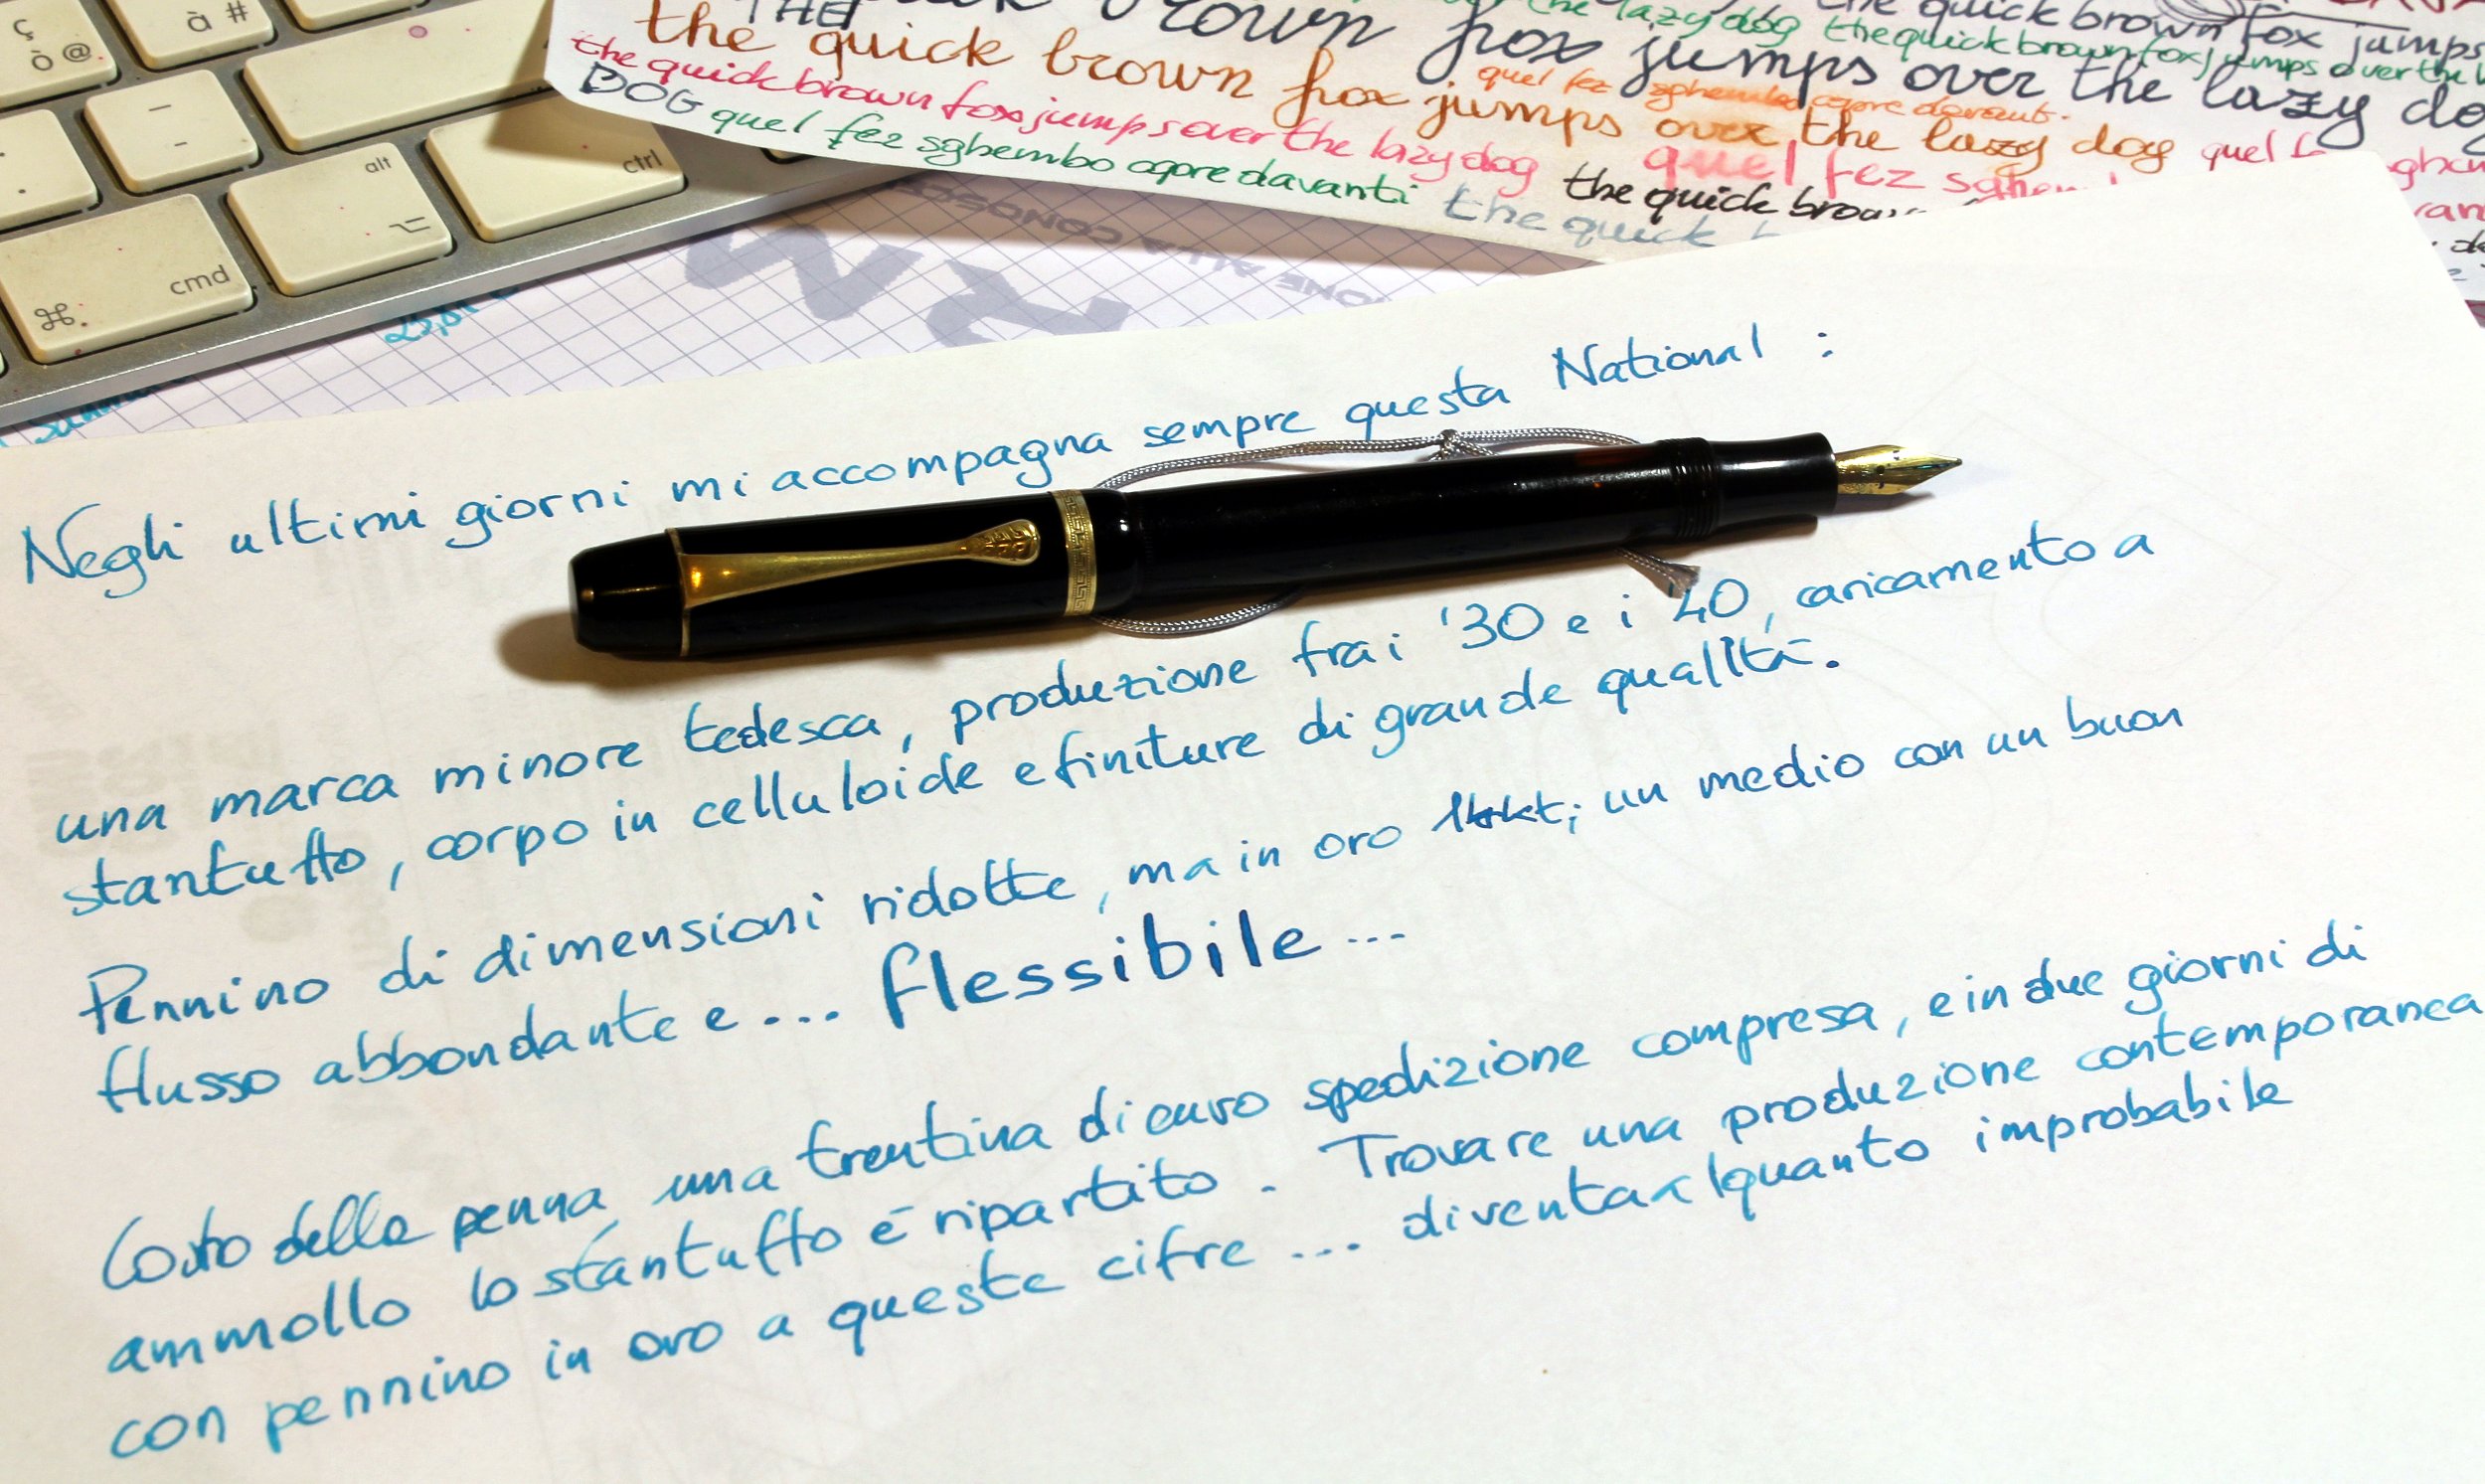 ç
ò @
à #
alt
ctrl
cmd
the lazy dog the quick brown fox jumps over the
the quick brown fox jumps
the quick brown fox jumps over the lazy dog
quel fez sghembo copre davanti
the quick brown fox jumps over the lazy dog
DOG quel fez sghembo copre davanti
the quick
quel fez
the quick
Negli ultimi giorni mi accompagna sempre questa National :
una marca minore tedesca, produzione fra i '30 e i 40, caricamento a
stantuffo, corpo in celluloide e finiture di grande qualità.
Pennino di dimensioni ridotte, ma in oro 14kt; un medio con un buon
flusso abbondante e... flessibile...
Costo della penna una trentina di euro spedizione compresa, e in due giorni di
ammollo lo stantuffo è ripartito. Trovare una produzione contemporanea
con pennino in oro a queste cifre... diventa alquanto improbabile